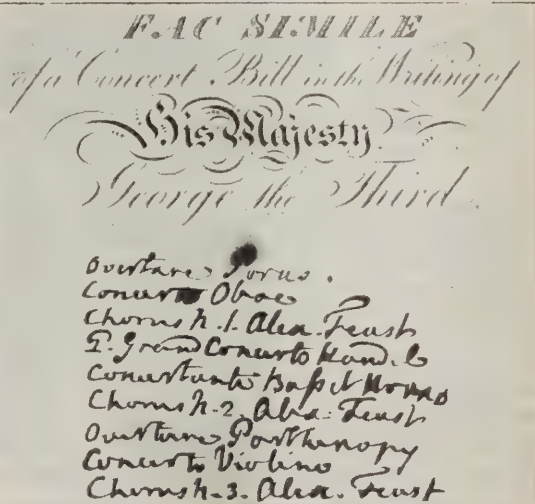 FAC SIMILE
of a Concert Bill in the Writing of
His Majesty
George the Third.
Overture Porus.
Concerto Oboe
Chorus N. 1. Alex. Feast
Grand Concerto Hand.
Concertante Basset Horns
Chorus N. 2. Alex. Feast
Overture Parthenopy
Concerto Violino
Chorus N. 3. Alex. Feast